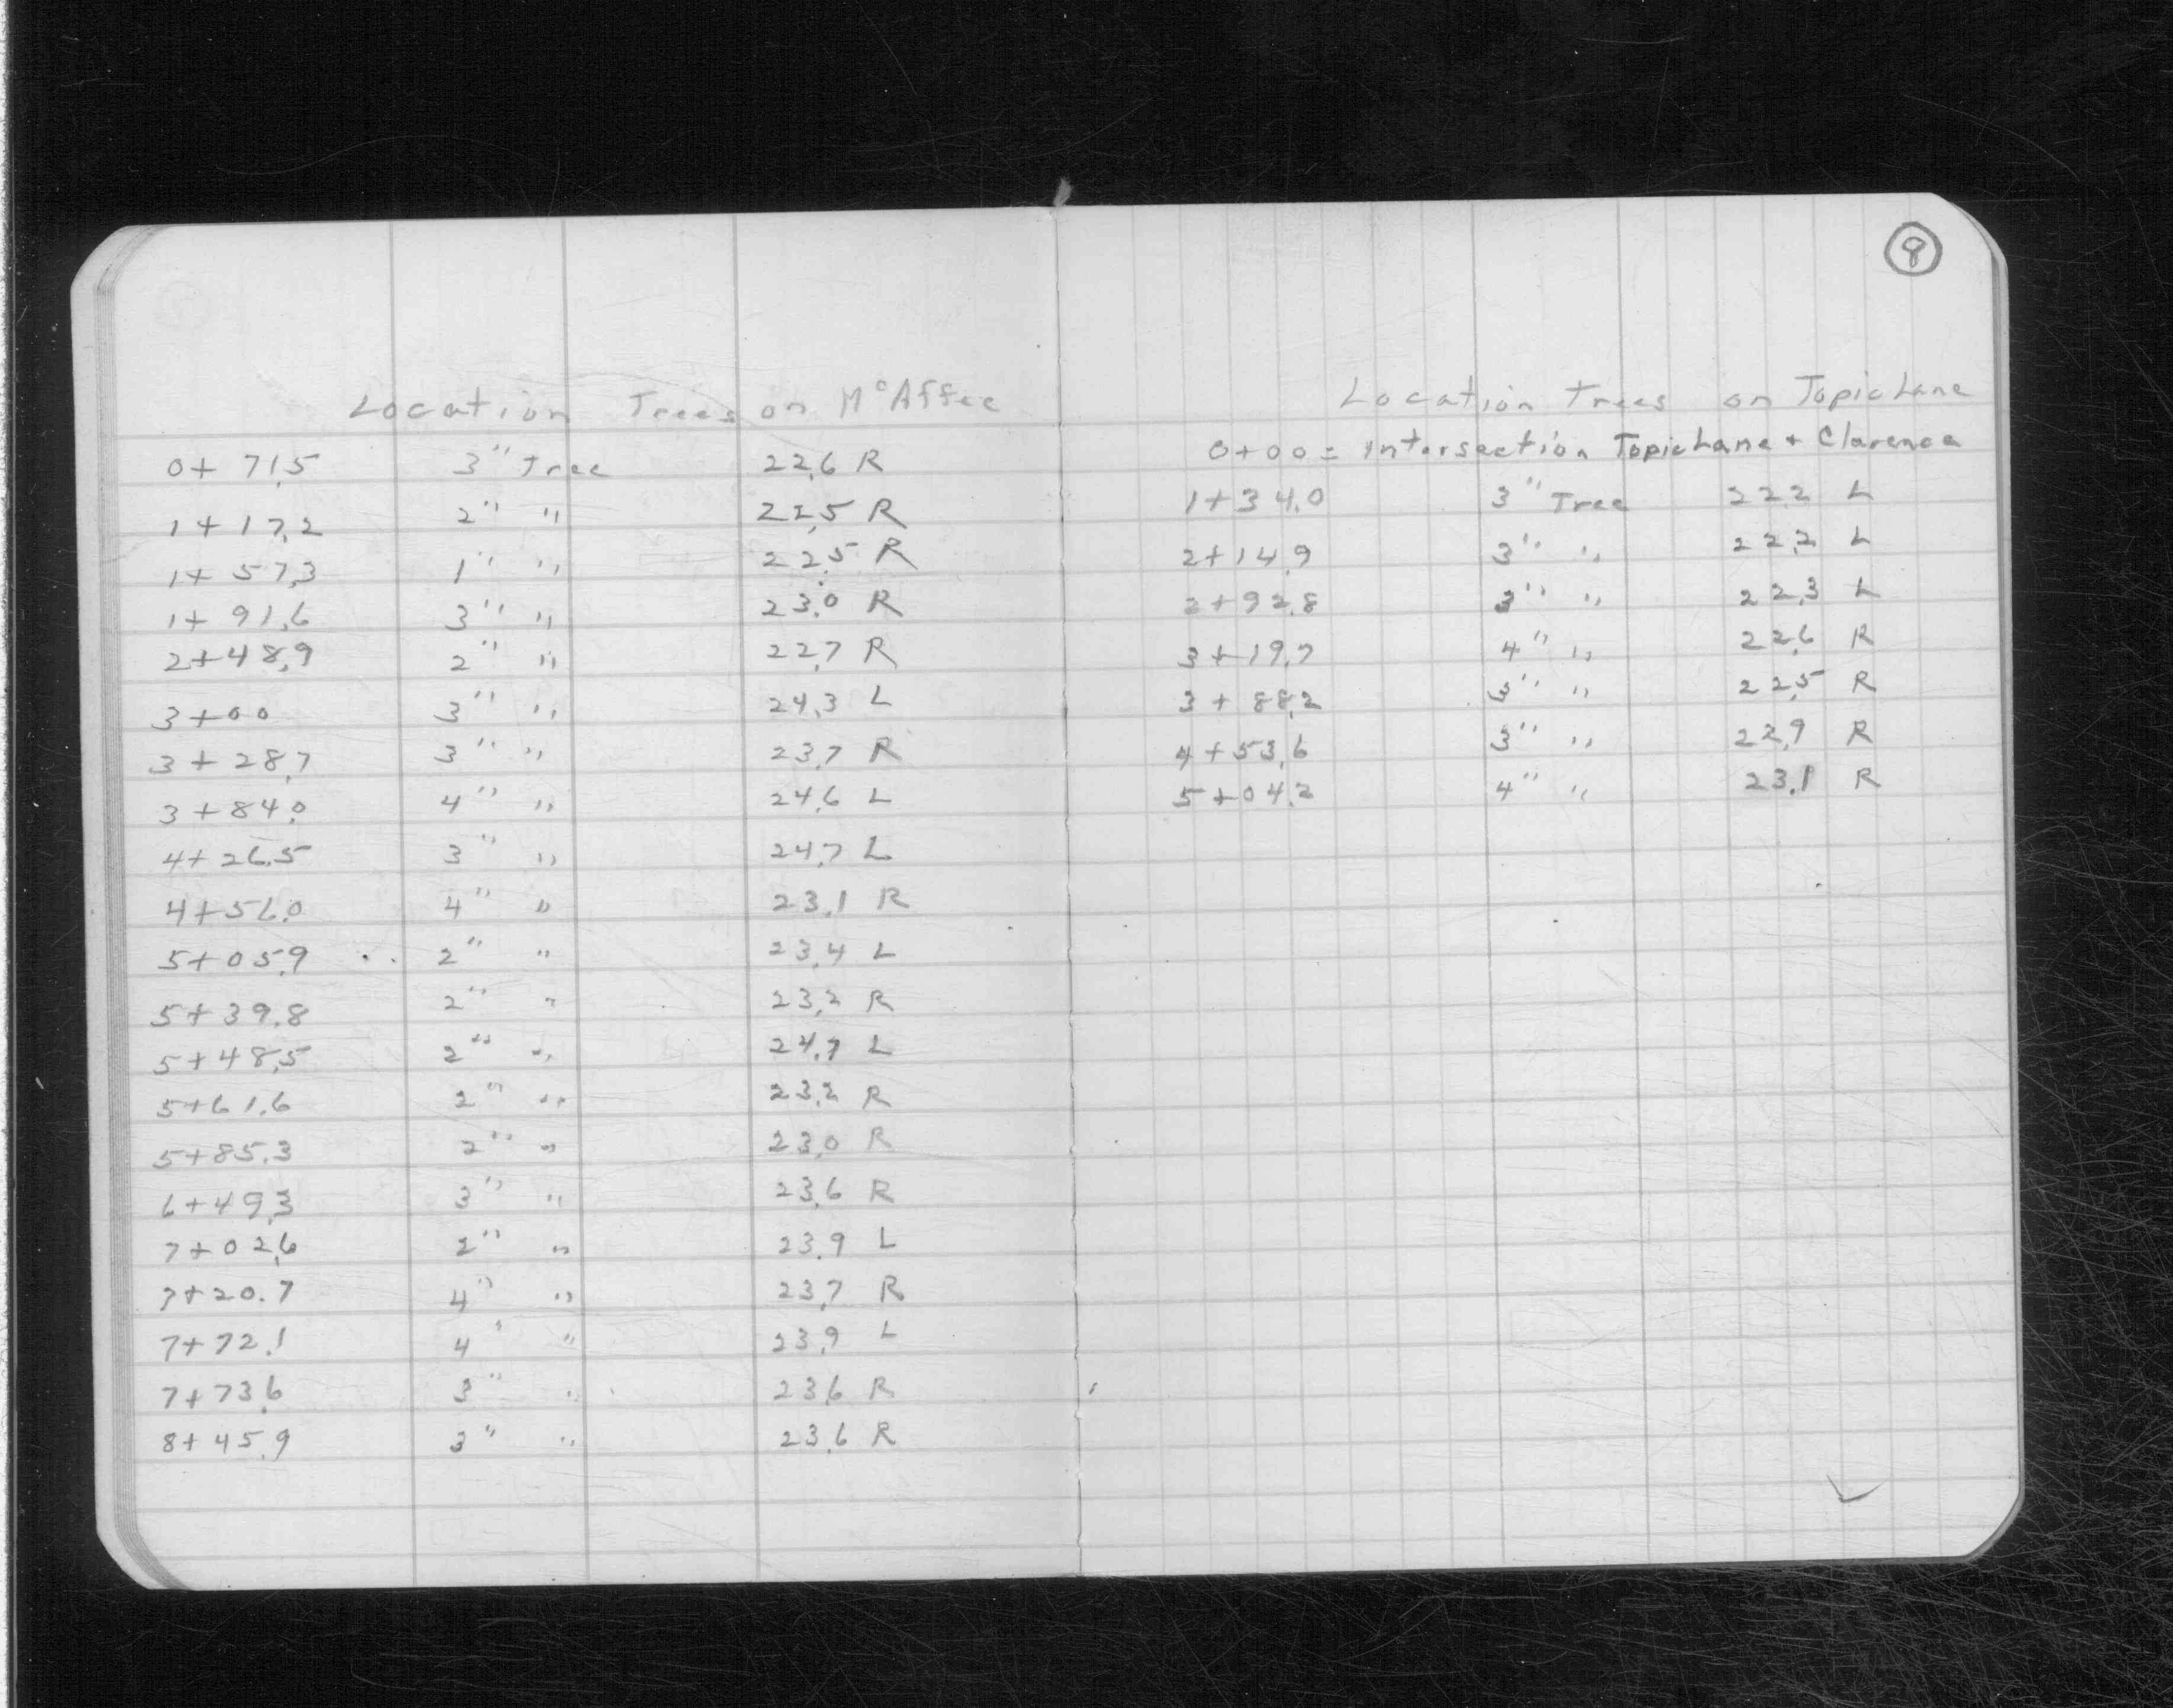 Location Trees on McAffee
0+71.5 3" Tree 22.6 R
1+17.2 2" " 22.5 R
1+57.3 1" " 22.5 R
1+91.6 3" " 23.0 R
2+48.9 2" " 22.7 R
3+00 3" " 24.3 L
3+28.7 3" " 23.7 R
3+84.0 4" " 24.6 L
4+26.5 3" " 24.7 L
4+56.0 4" " 23.1 R
5+05.9 2" " 23.4 L
5+39.8 2" " 23.2 R
5+48.5 2" " 24.7 L
5+61.6 2" " 23.2 R
5+85.3 2" " 23.0 R
6+49.3 3" " 23.6 R
7+02.6 2" " 23.9 L
7+20.7 4" " 23.7 R
7+72.1 4" " 23.9 L
7+73.6 3" " 23.6 R
8+45.9 3" " 23.6 R
8
Location Trees on Topic Lane
0+00 = Intersection Topic Lane + Clarence
1+34.0 3" Tree 22.2 L
2+14.9 3" " 22.2 L
2+92.8 3" " 22.3 L
3+19.7 4" " 22.6 R
3+88.2 3" " 22.5 R
4+53.6 3" " 22.9 R
5+04.2 4" " 23.1 R